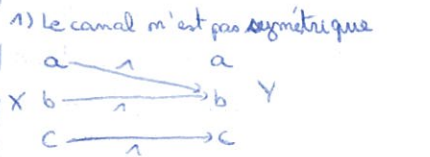 1) Le canal n'est pas symétrique
a 1 a
X b 1 b Y
c 1 c